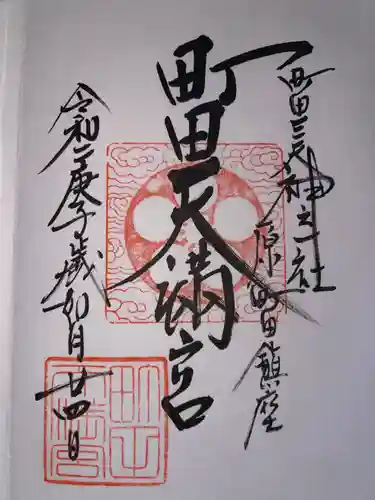 町田三天神之一社
原町田鎮座
町田天満宮
令和二庚子歳如月廿四日